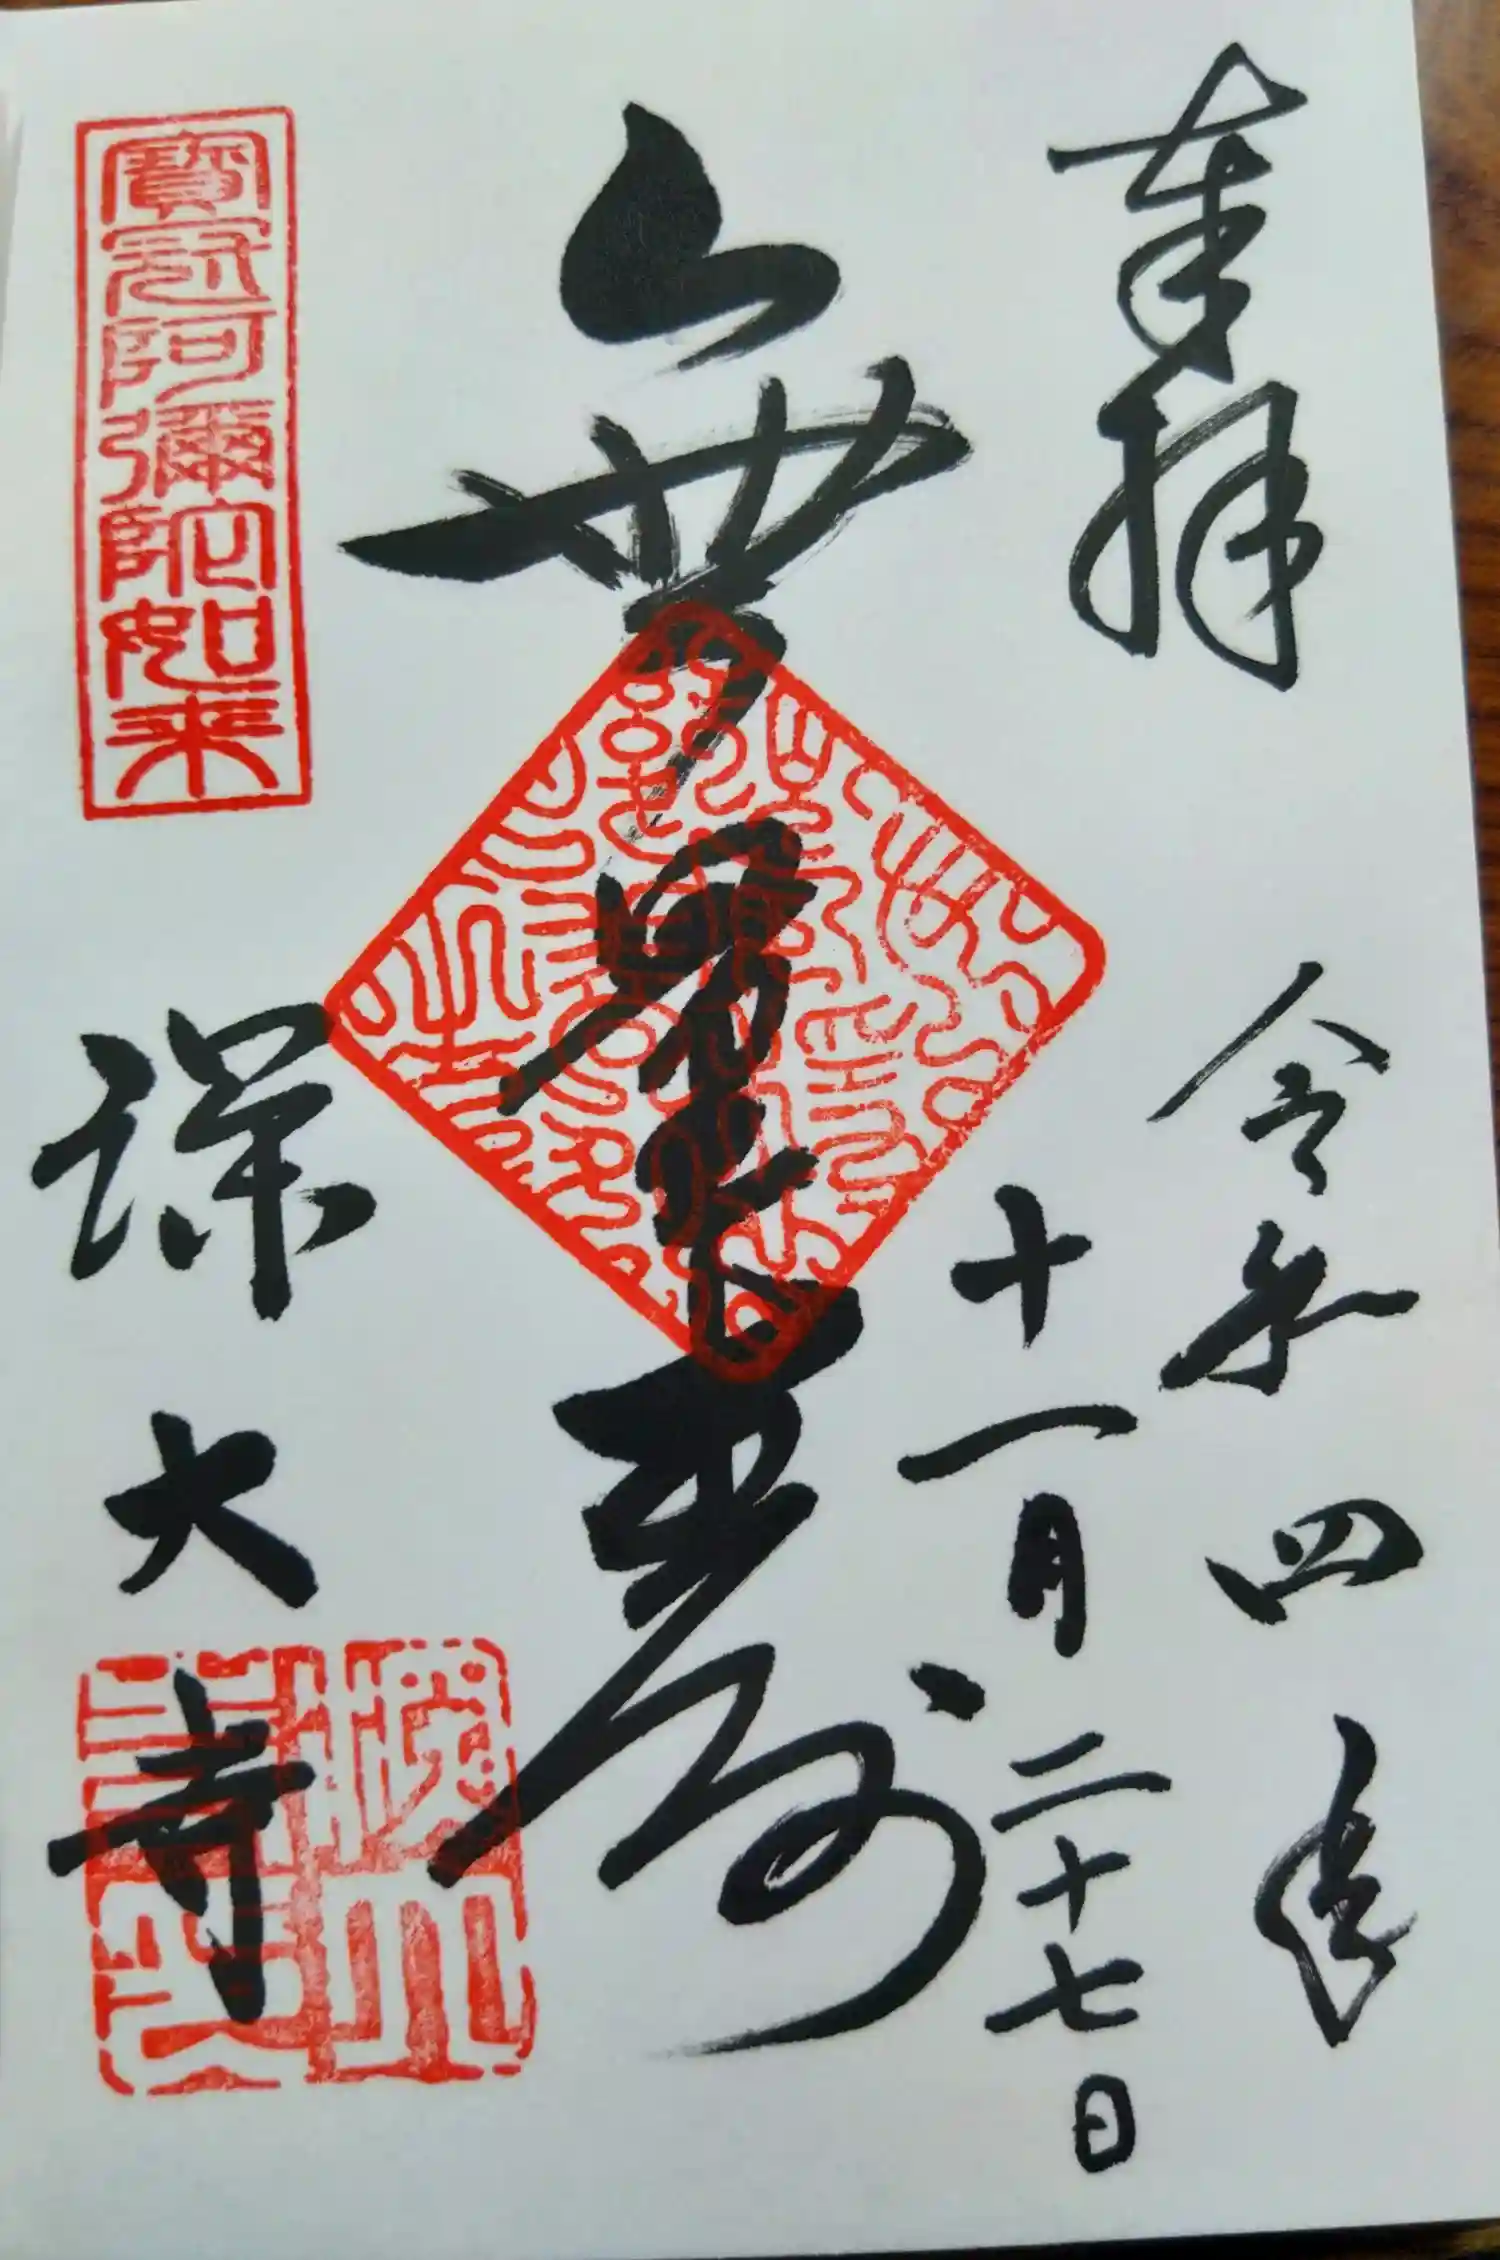 奉拝
令和四年
十一月二十七日
無量壽
寶冠阿彌陀如来
深大寺